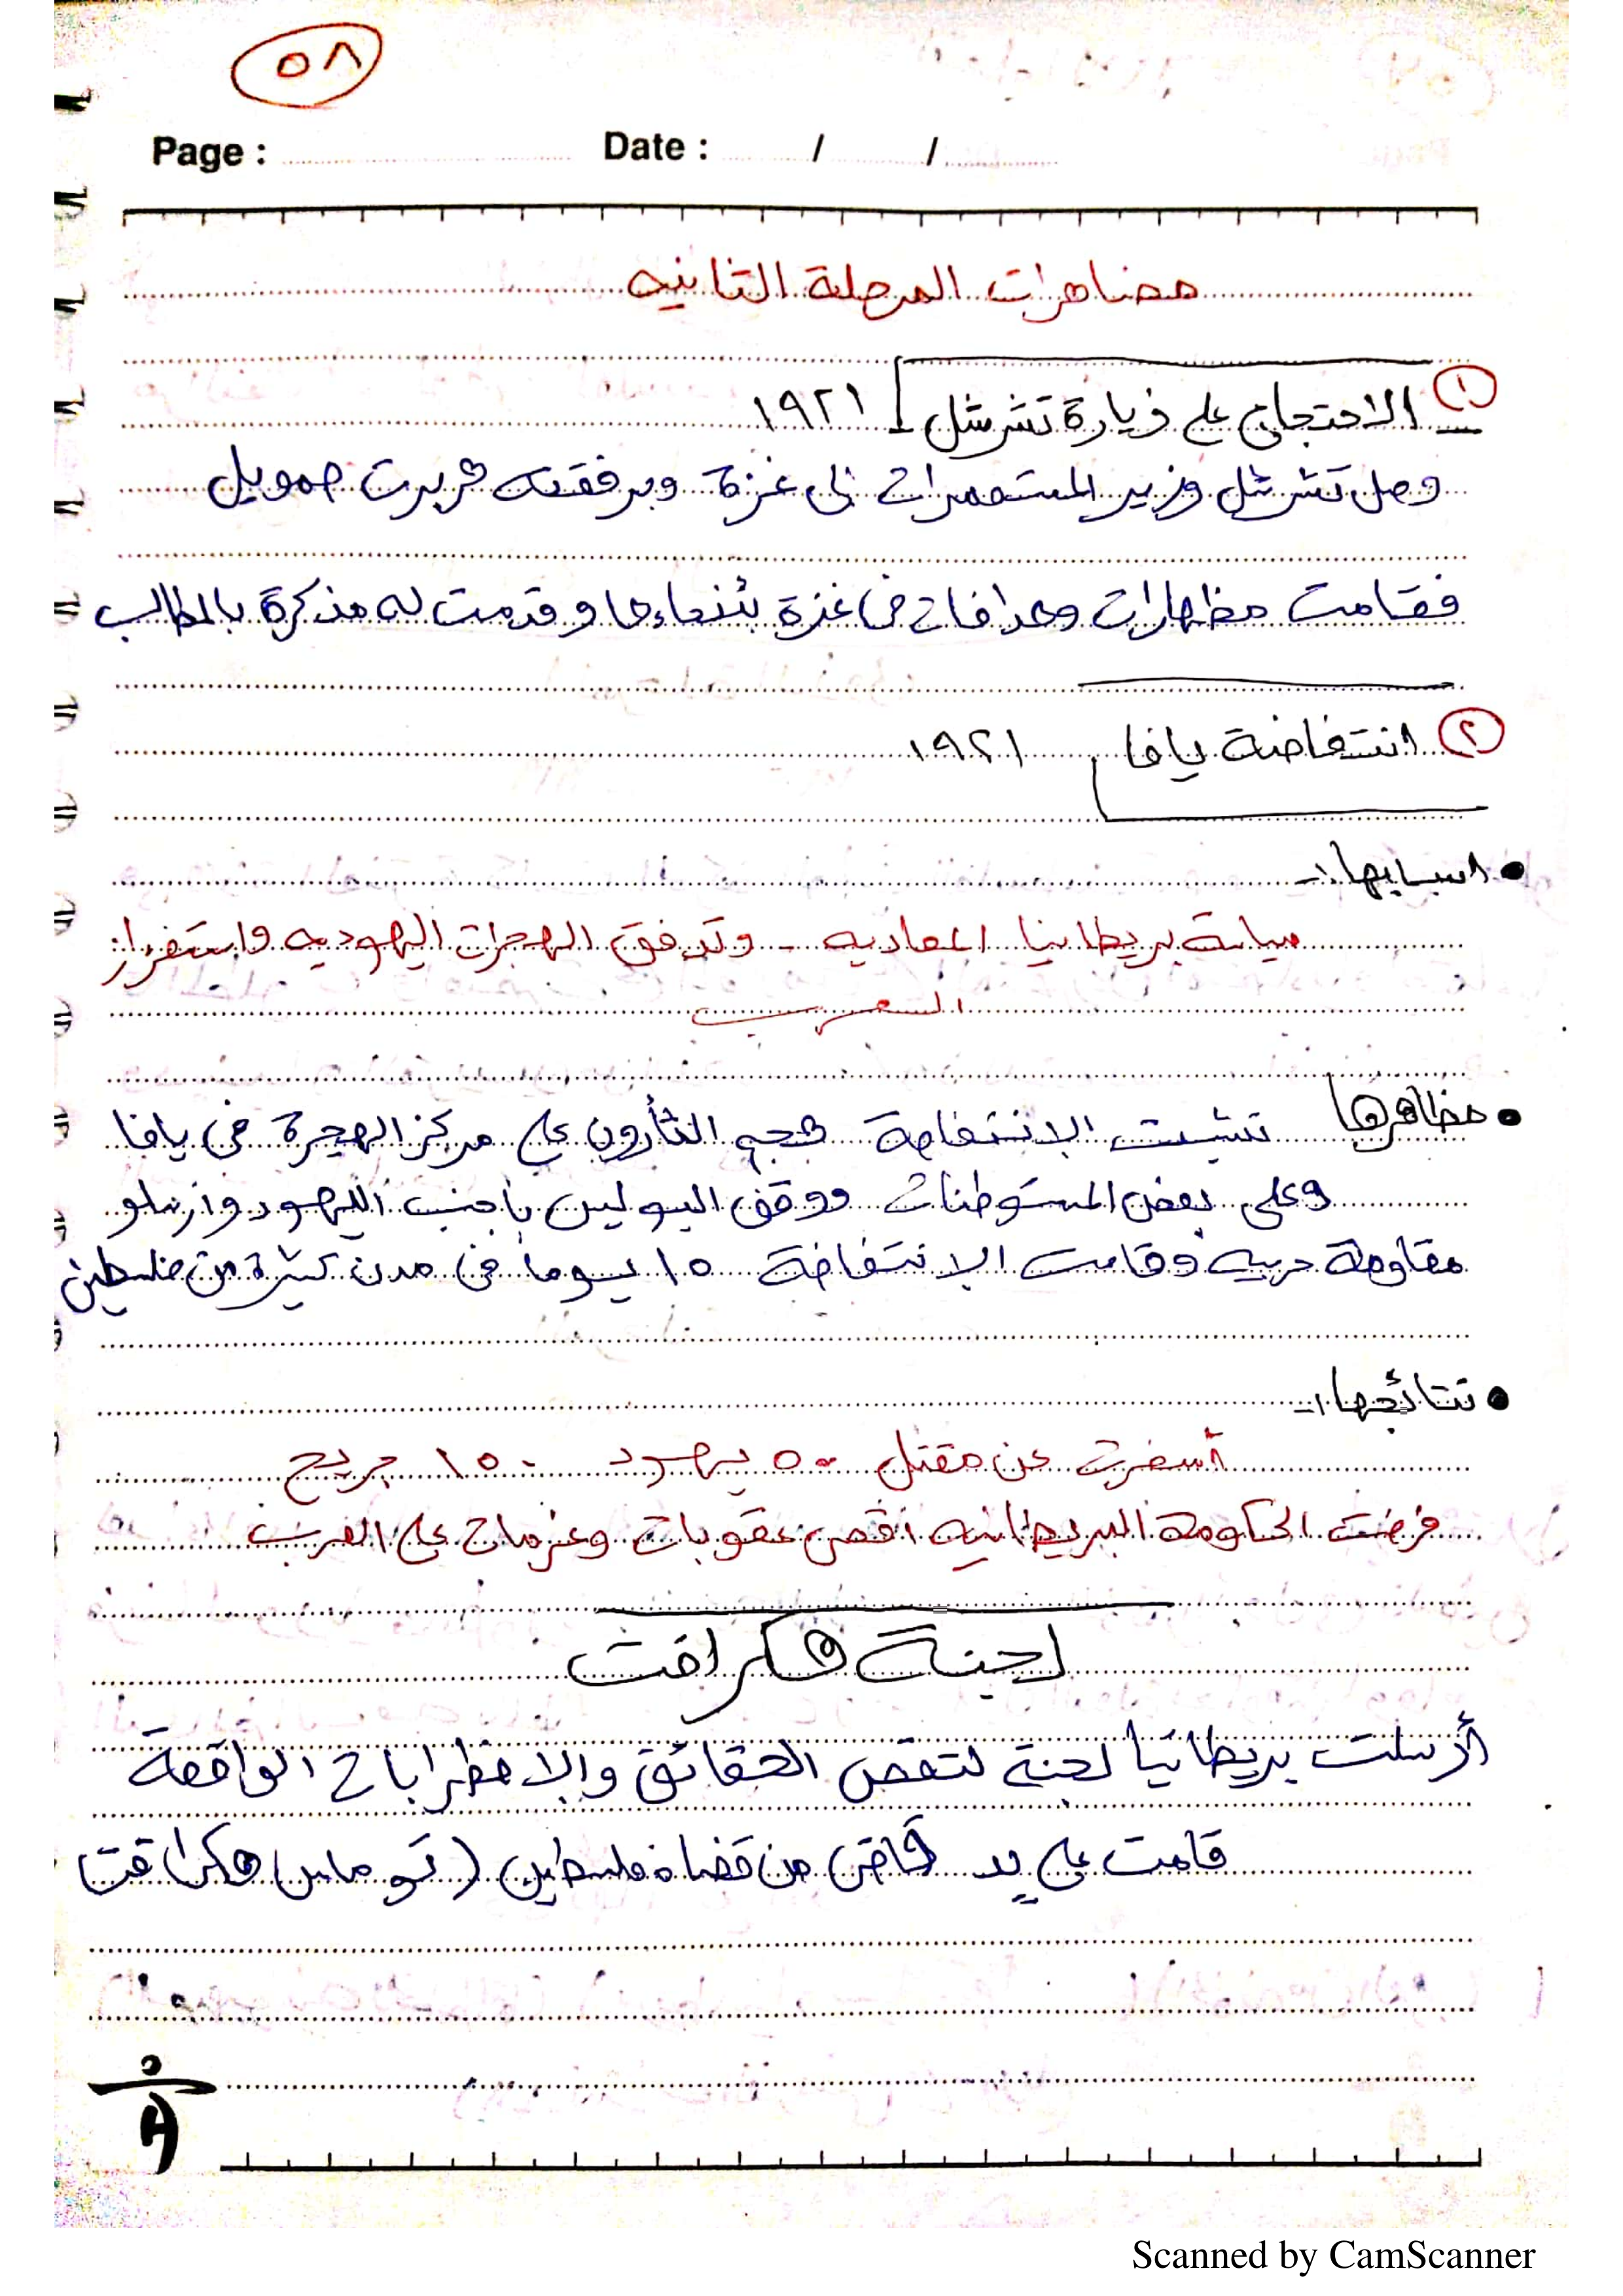 ٥٨
Page : Date : / /
مضاهرات المرحلة الثانيه
١ الاحتجاج على زيارة تشرشل ١٩٢١
وصل تشرشل وزير المستعمرات الى غزة وبرفقته هربرت صمويل
فقامت مظهارات وهدافات في غزة وقدمت له مذكرة بالمطالب
٢ انتفاضة يافا ١٩٢١
• اسبابها :-
سياسة بريطانيا المعاديه - وتدفق الهجرات اليهوديه واستفرار
العرب
• مظاهرها نشبت الانتفاضة هجم الثأرون على مركز الهجرة في يافا
وعلى بعض المستوطنات ووقف البوليس بأجنب اليهود وارسلو
مقاومة حربيه وقامت الانتفاضة ١٥ يوماً في مدن كثيرة من فلسطين
• نتائجها :-
أسفرت عن مقتل ٥٠ يهود ١٥٠ جريح
فرضت الحكومة البريطانيه اقصى عقوبات وغرمات على العرب
لجنة هكرافت
أرسلت بريطانيا لجنة لتقص الحقائق والاضطرابات الواقعة
قامت على يد قاضي من قضاة فلسطين (توماس هكرافت
Scanned by CamScanner